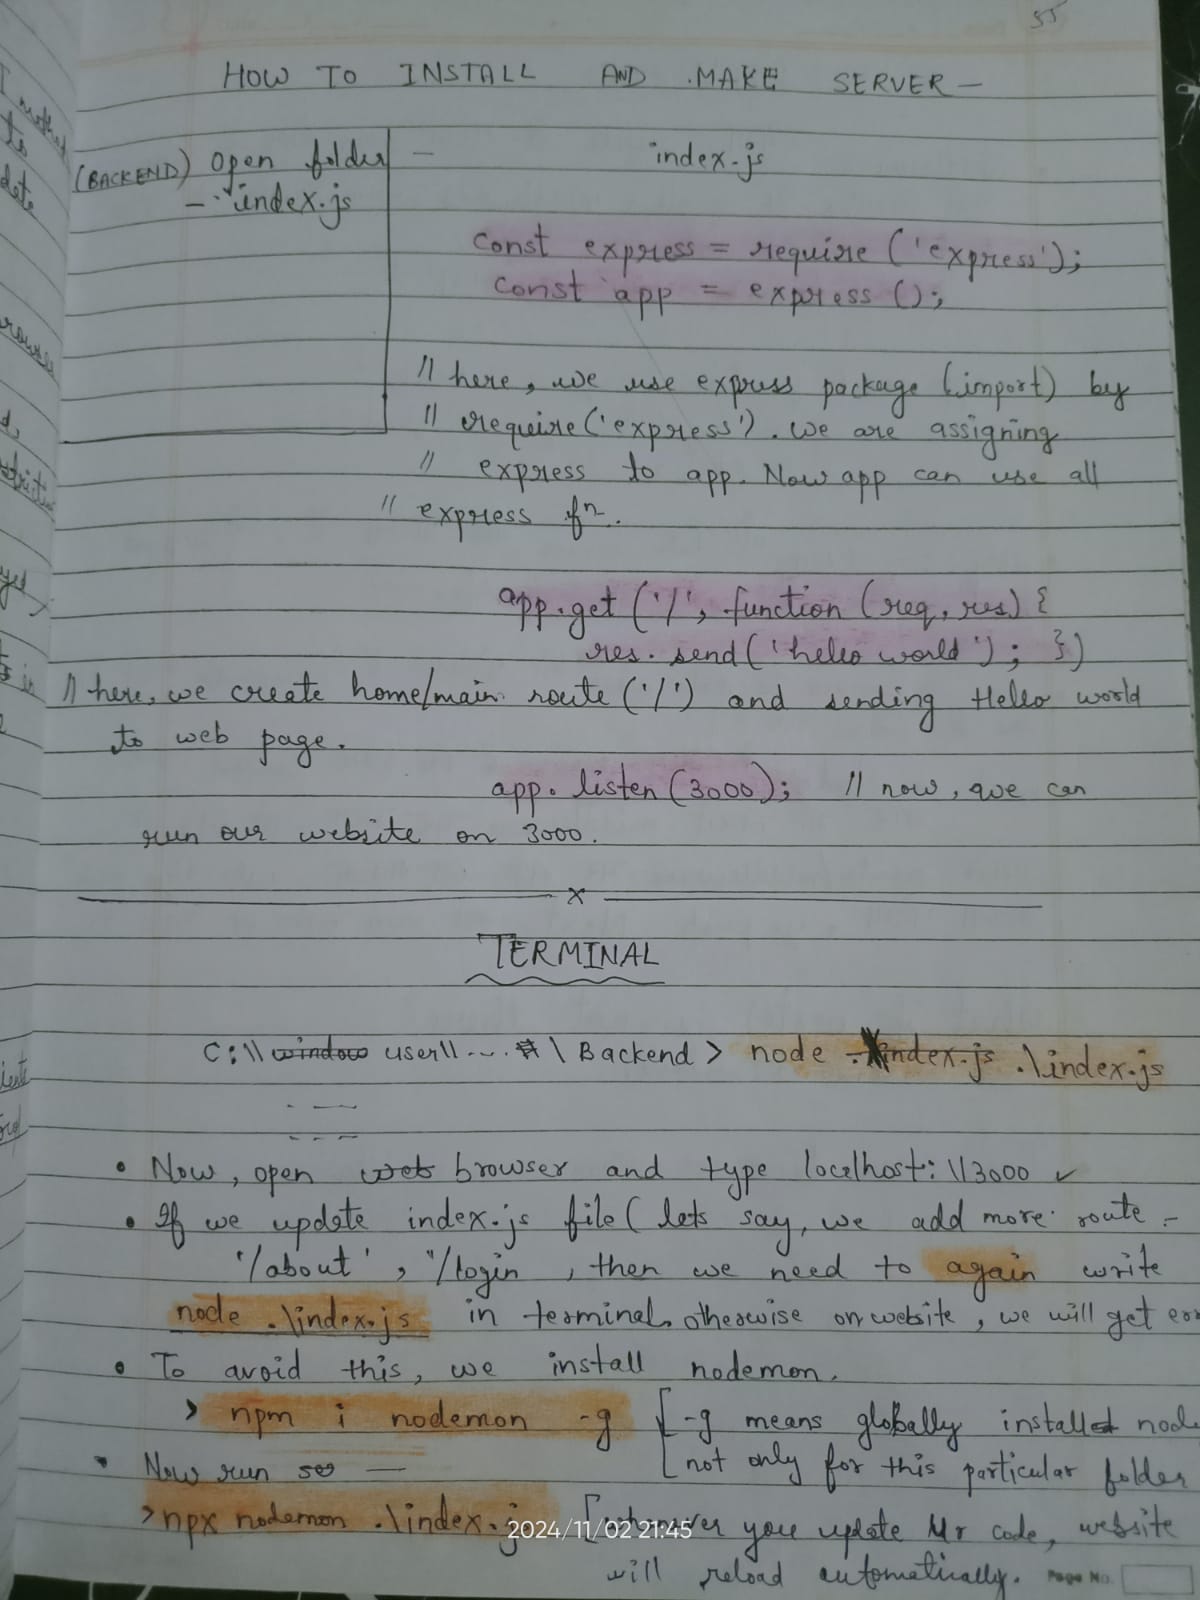 55
HOW TO INSTALL AND MAKE SERVER —
(BACKEND) Open folder —
— index.js
index.js
const express = require ('express');
const app = express ();
// here, we use express package (import) by
// require('express'). We are assigning
// express to app. Now app can use all
// express fn.
app.get ('/', function (req, res) {
res. send('hello world'); })
// here, we create home/main route ('/') and sending Hello world
to web page.
app. listen (3000); // now, we can
run our website on 3000.
x
TERMINAL
C:\\ window user\\ .... \ Backend > node .\index.js .\index.js
• Now, open web browser and type localhost: \\3000 ✓
• If we update index.js file ( lets say, we add more route -
'/about', '/login , then we need to again write
node .\index.js in terminal. otherwise on website, we will get
• To avoid this, we install nodemon.
> npm i nodemon -g [ -g means globally installed
[ not only for this particular folder
• Now run —
> npx nodemon .\index.j [ whenever you update code, website
will reload automatically.
2024/11/02 21:45
Page No.